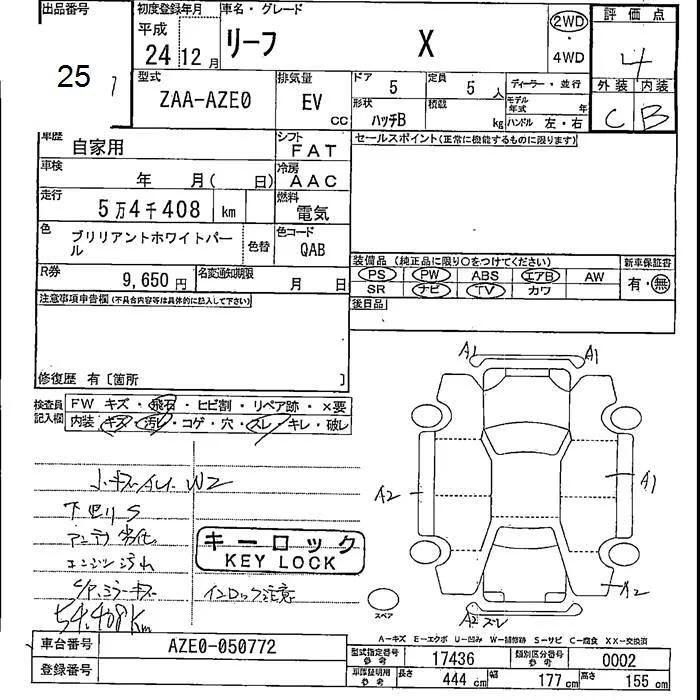 出品番号
25
初度登録年月
平成
24 12月
車名・グレード
リーフ X
2WD
4WD
評価点
4
外装 内装
C B
型式
ZAA-AZE0
排気量
EV
CC
ドア
5
定員
5人
形状
ハッチB
積載
kg
ディーラー・並行
モデル年式 年
ハンドル 左・右
車歴
自家用
シフト
FAT
車検
年 月( 日)
冷房
AAC
走行
5万4千408 km
燃料
電気
色
ブリリアントホワイトパール
色替
色コード
QAB
R券
9,650円
名変通知期限
月 日
セールスポイント(正常に機能するものに限ります)
装備品(純正品に限り○をつけてください)
PS PW ABS エアB AW
SR ナビ TV カワ
新車保証書
有・無
後日品
注意事項申告欄(不具合内容等は具体的に記入して下さい)
修復歴 有〔箇所 〕
検査員記入欄
FW キズ・飛石・ヒビ割・リペア跡・×要
内装 キズ・汚レ・コゲ・穴・スレ・キレ・破レ
小キズAU W2
下回りS
アンテナ劣化
エンジン汚れ
ミラーキズ
54,408Km
キーロック
KEY LOCK
インロック注意
A1 A1
A2 A1
A2
A2 スレ
スペア
A-キズ E-エクボ U-凹み W-補修跡 S-サビ C-腐食 XX-交換済
車台番号
AZE0-050772
登録番号
型式指定番号
参考
17436
類別区分番号
参考
0002
車庫証明用
参考
長さ
444cm
幅
177cm
高さ
155cm